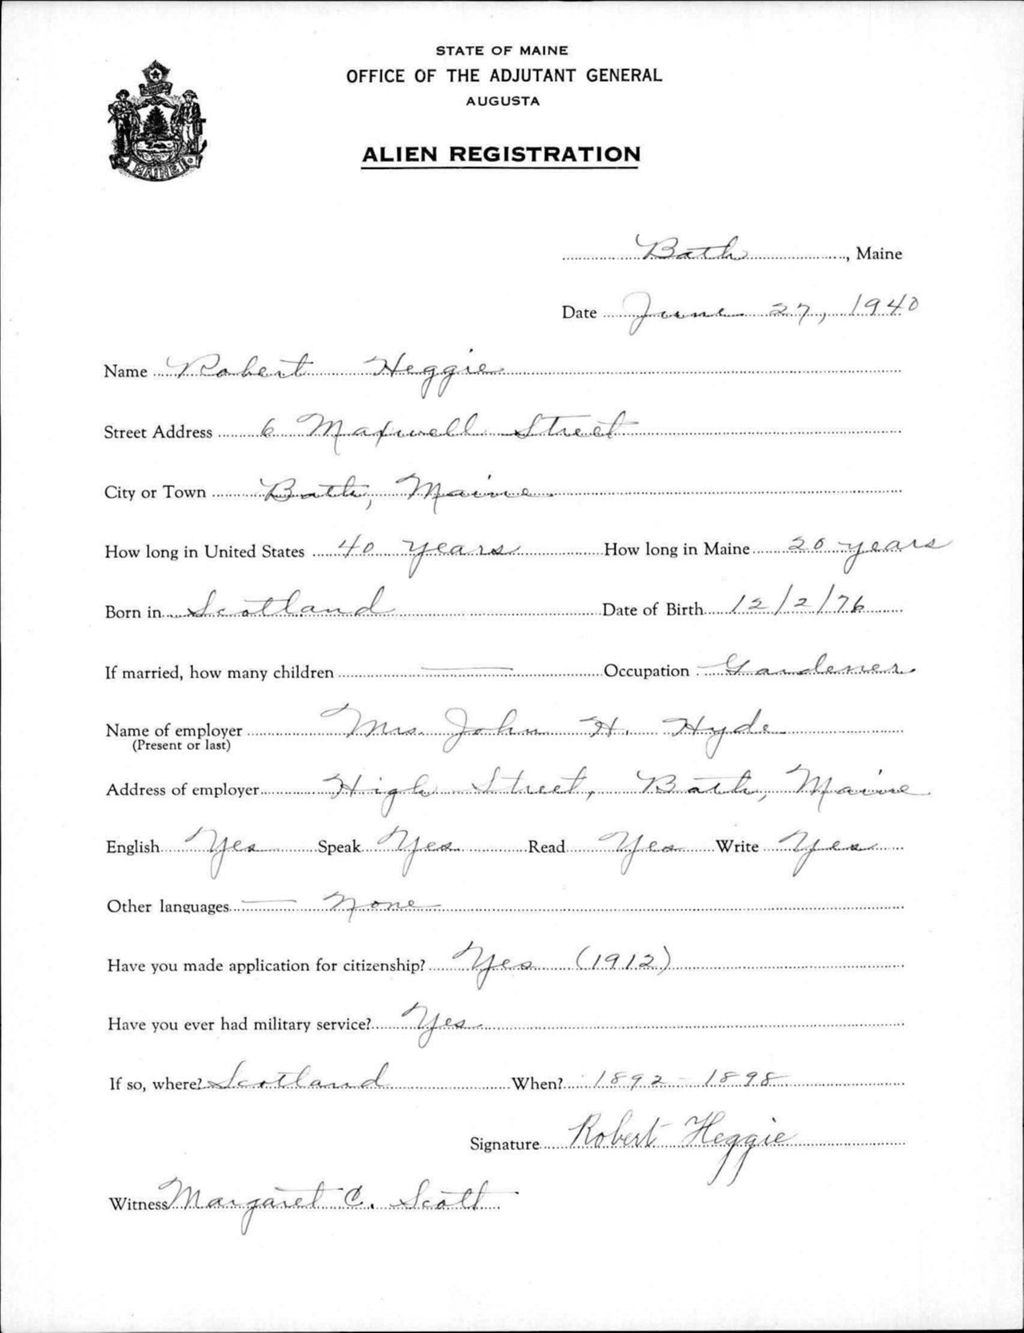 STATE OF MAINE
OFFICE OF THE ADJUTANT GENERAL
AUGUSTA
ALIEN REGISTRATION
MAINE
Bath, Maine
Date June 27, 1940
Name Robert Heggie
Street Address 6 Maxwell Street
City or Town Bath, Maine
How long in United States 40 years How long in Maine 20 years
Born in Scotland Date of Birth 12/2/76
If married, how many children — Occupation Gardener
Name of employer Mrs. John H. Hyde
(Present or last)
Address of employer High Street, Bath, Maine
English Yes Speak Yes Read Yes Write Yes
Other languages — None
Have you made application for citizenship? Yes (1912)
Have you ever had military service? Yes
If so, where? Scotland When? 1892 - 1898
Signature Robert Heggie
Witness Margaret C. Scott